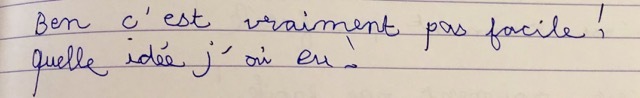 Ben c'est vraiment pas facile !
quelle idée j'ai eu !